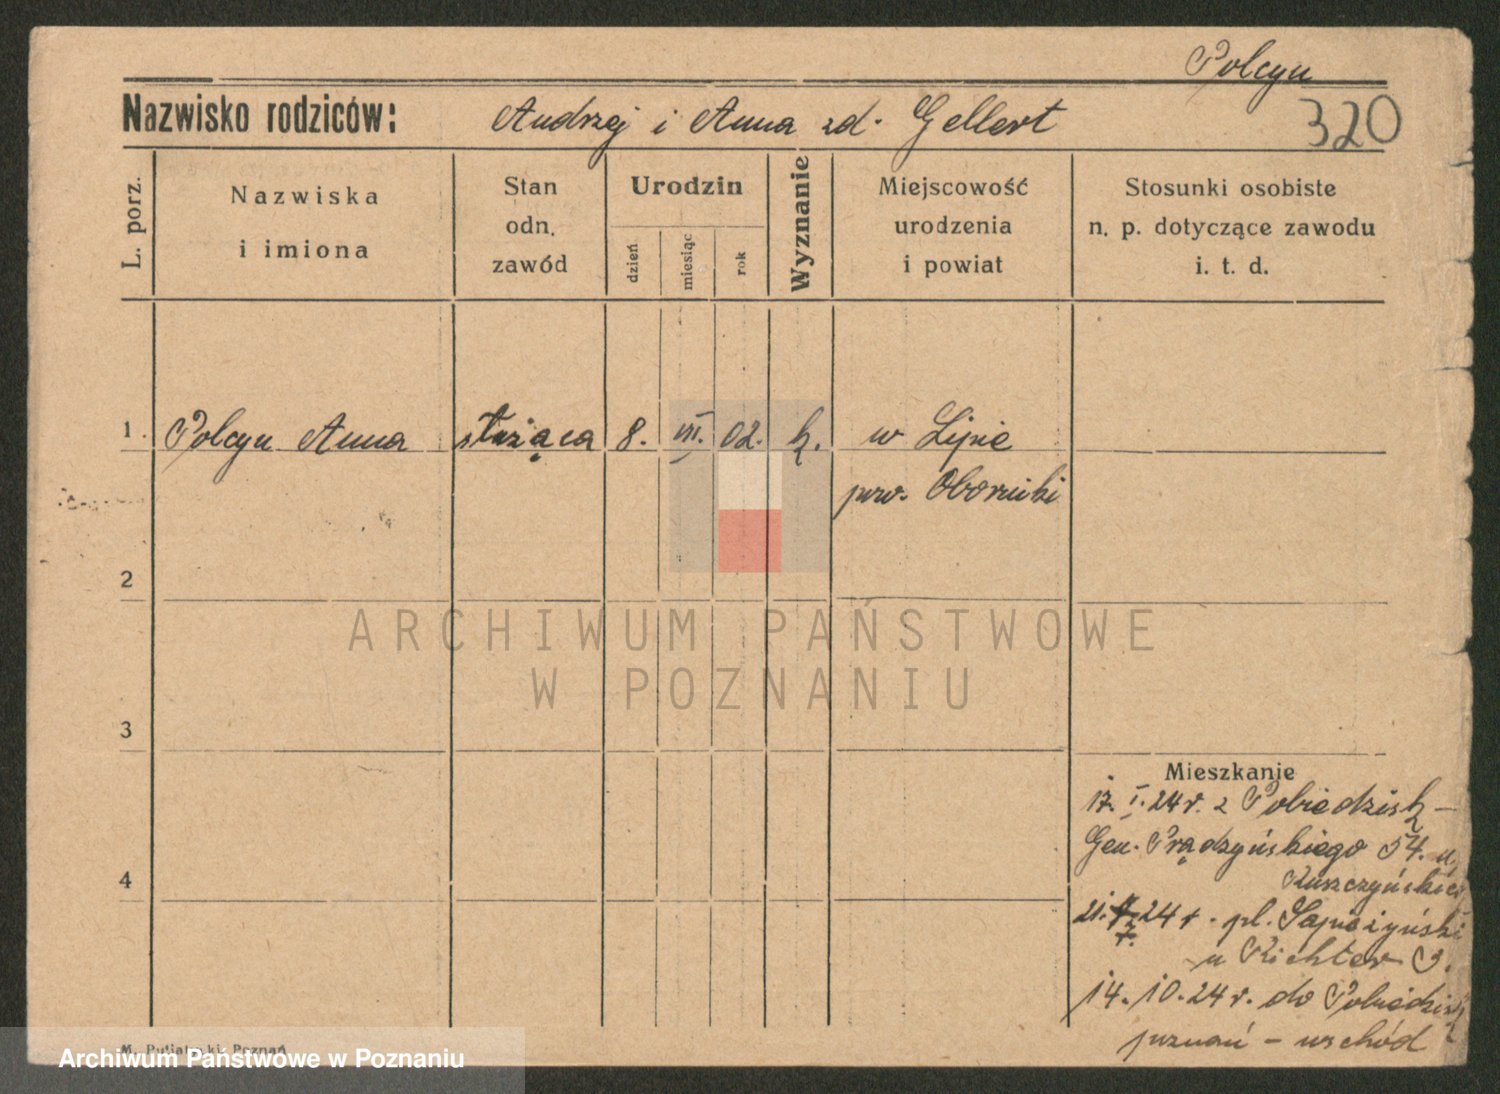 Polcyn
Nazwisko rodziców: Andrzej i Anna zd. Gellert
320
L. porz.
Nazwiska
i imiona
Stan
odn.
zawód
Urodzin
dzień
miesiąc
rok
Wyznanie
Miejscowość
urodzenia
i powiat
Stosunki osobiste
n. p. dotyczące zawodu
i. t. d.
1. Polcyn Anna służąca 8. VII. 02. k. w Lipie
pow. Obornicki
2
3
4
Mieszkanie
17. I. 24 r. z Pobiedzisk –
Gen. Prądzyńskiego 54. u
Ruszczyńskiej
21. 24 r. pl. Sapieżyński
u Richter 3.
14. 10. 24 r. do Pobiedzisk
poznań – wschód
M. Putiatycki, Poznań
ARCHIWUM PAŃSTWOWE
W POZNANIU
Archiwum Państwowe w Poznaniu